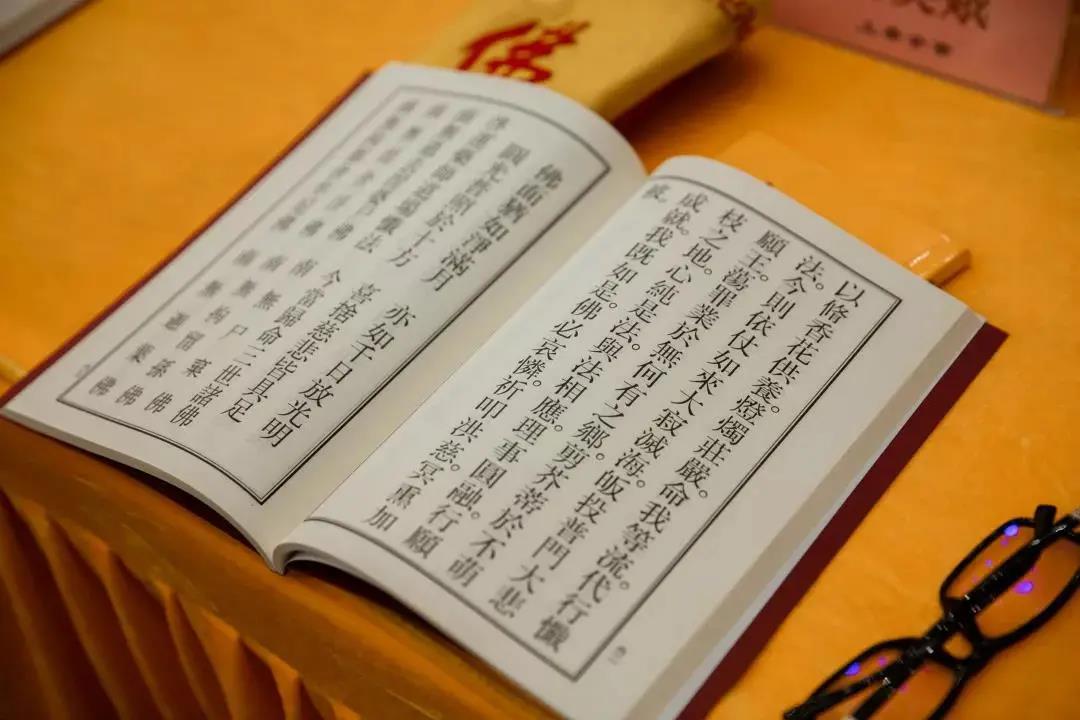 佛
以脩香花供養。燈燭莊嚴。命我等流。代行懺
法。今則依仗如來大寂滅海。皈投普門大悲
願王。蕩罪業於無何有之鄉。剪芥蒂於不萌
枝之地。心純是法。與法相應。理事圓融。行願
成就。我既如是。佛必哀憐。祈叩洪慈。冥熏加
被。
佛面猶如淨滿月 亦如千日放光明
圓光普照於十方 喜捨慈悲皆具足
道場懺法 今當歸命三世諸佛
南無尸棄佛
南無拘留孫佛
葉佛